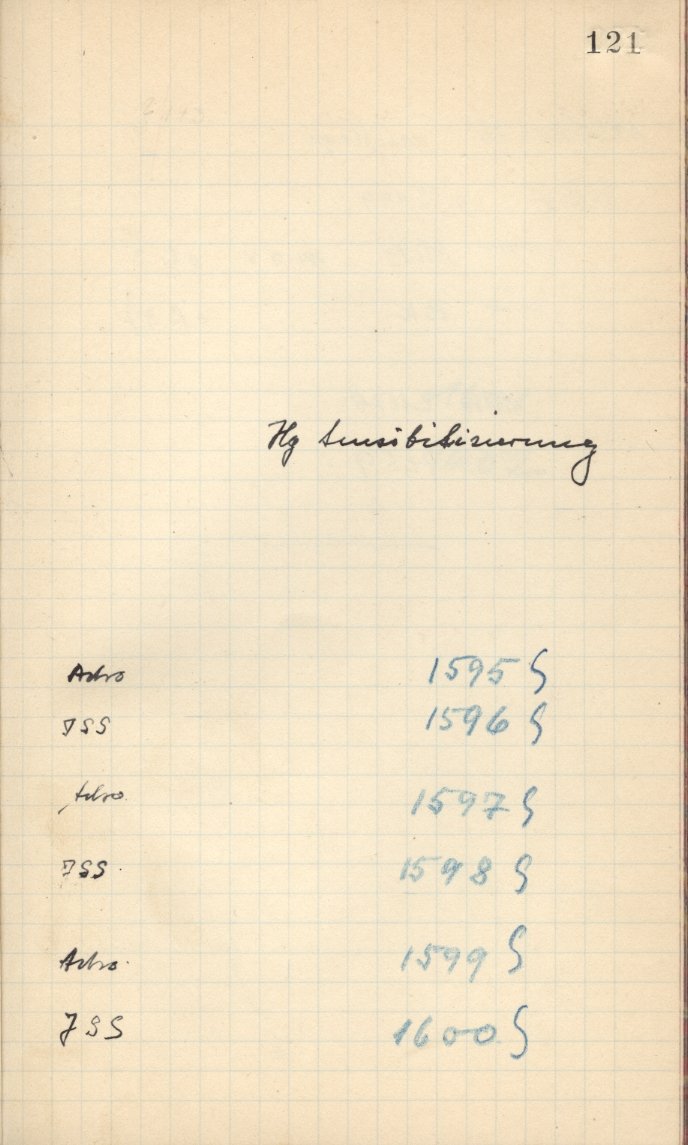 121
Hg Sensibilisierung
Astro 1595 S
ISS 1596 S
Astro 1597 S
ISS 1598 S
Astro 1599 S
ISS 1600 S